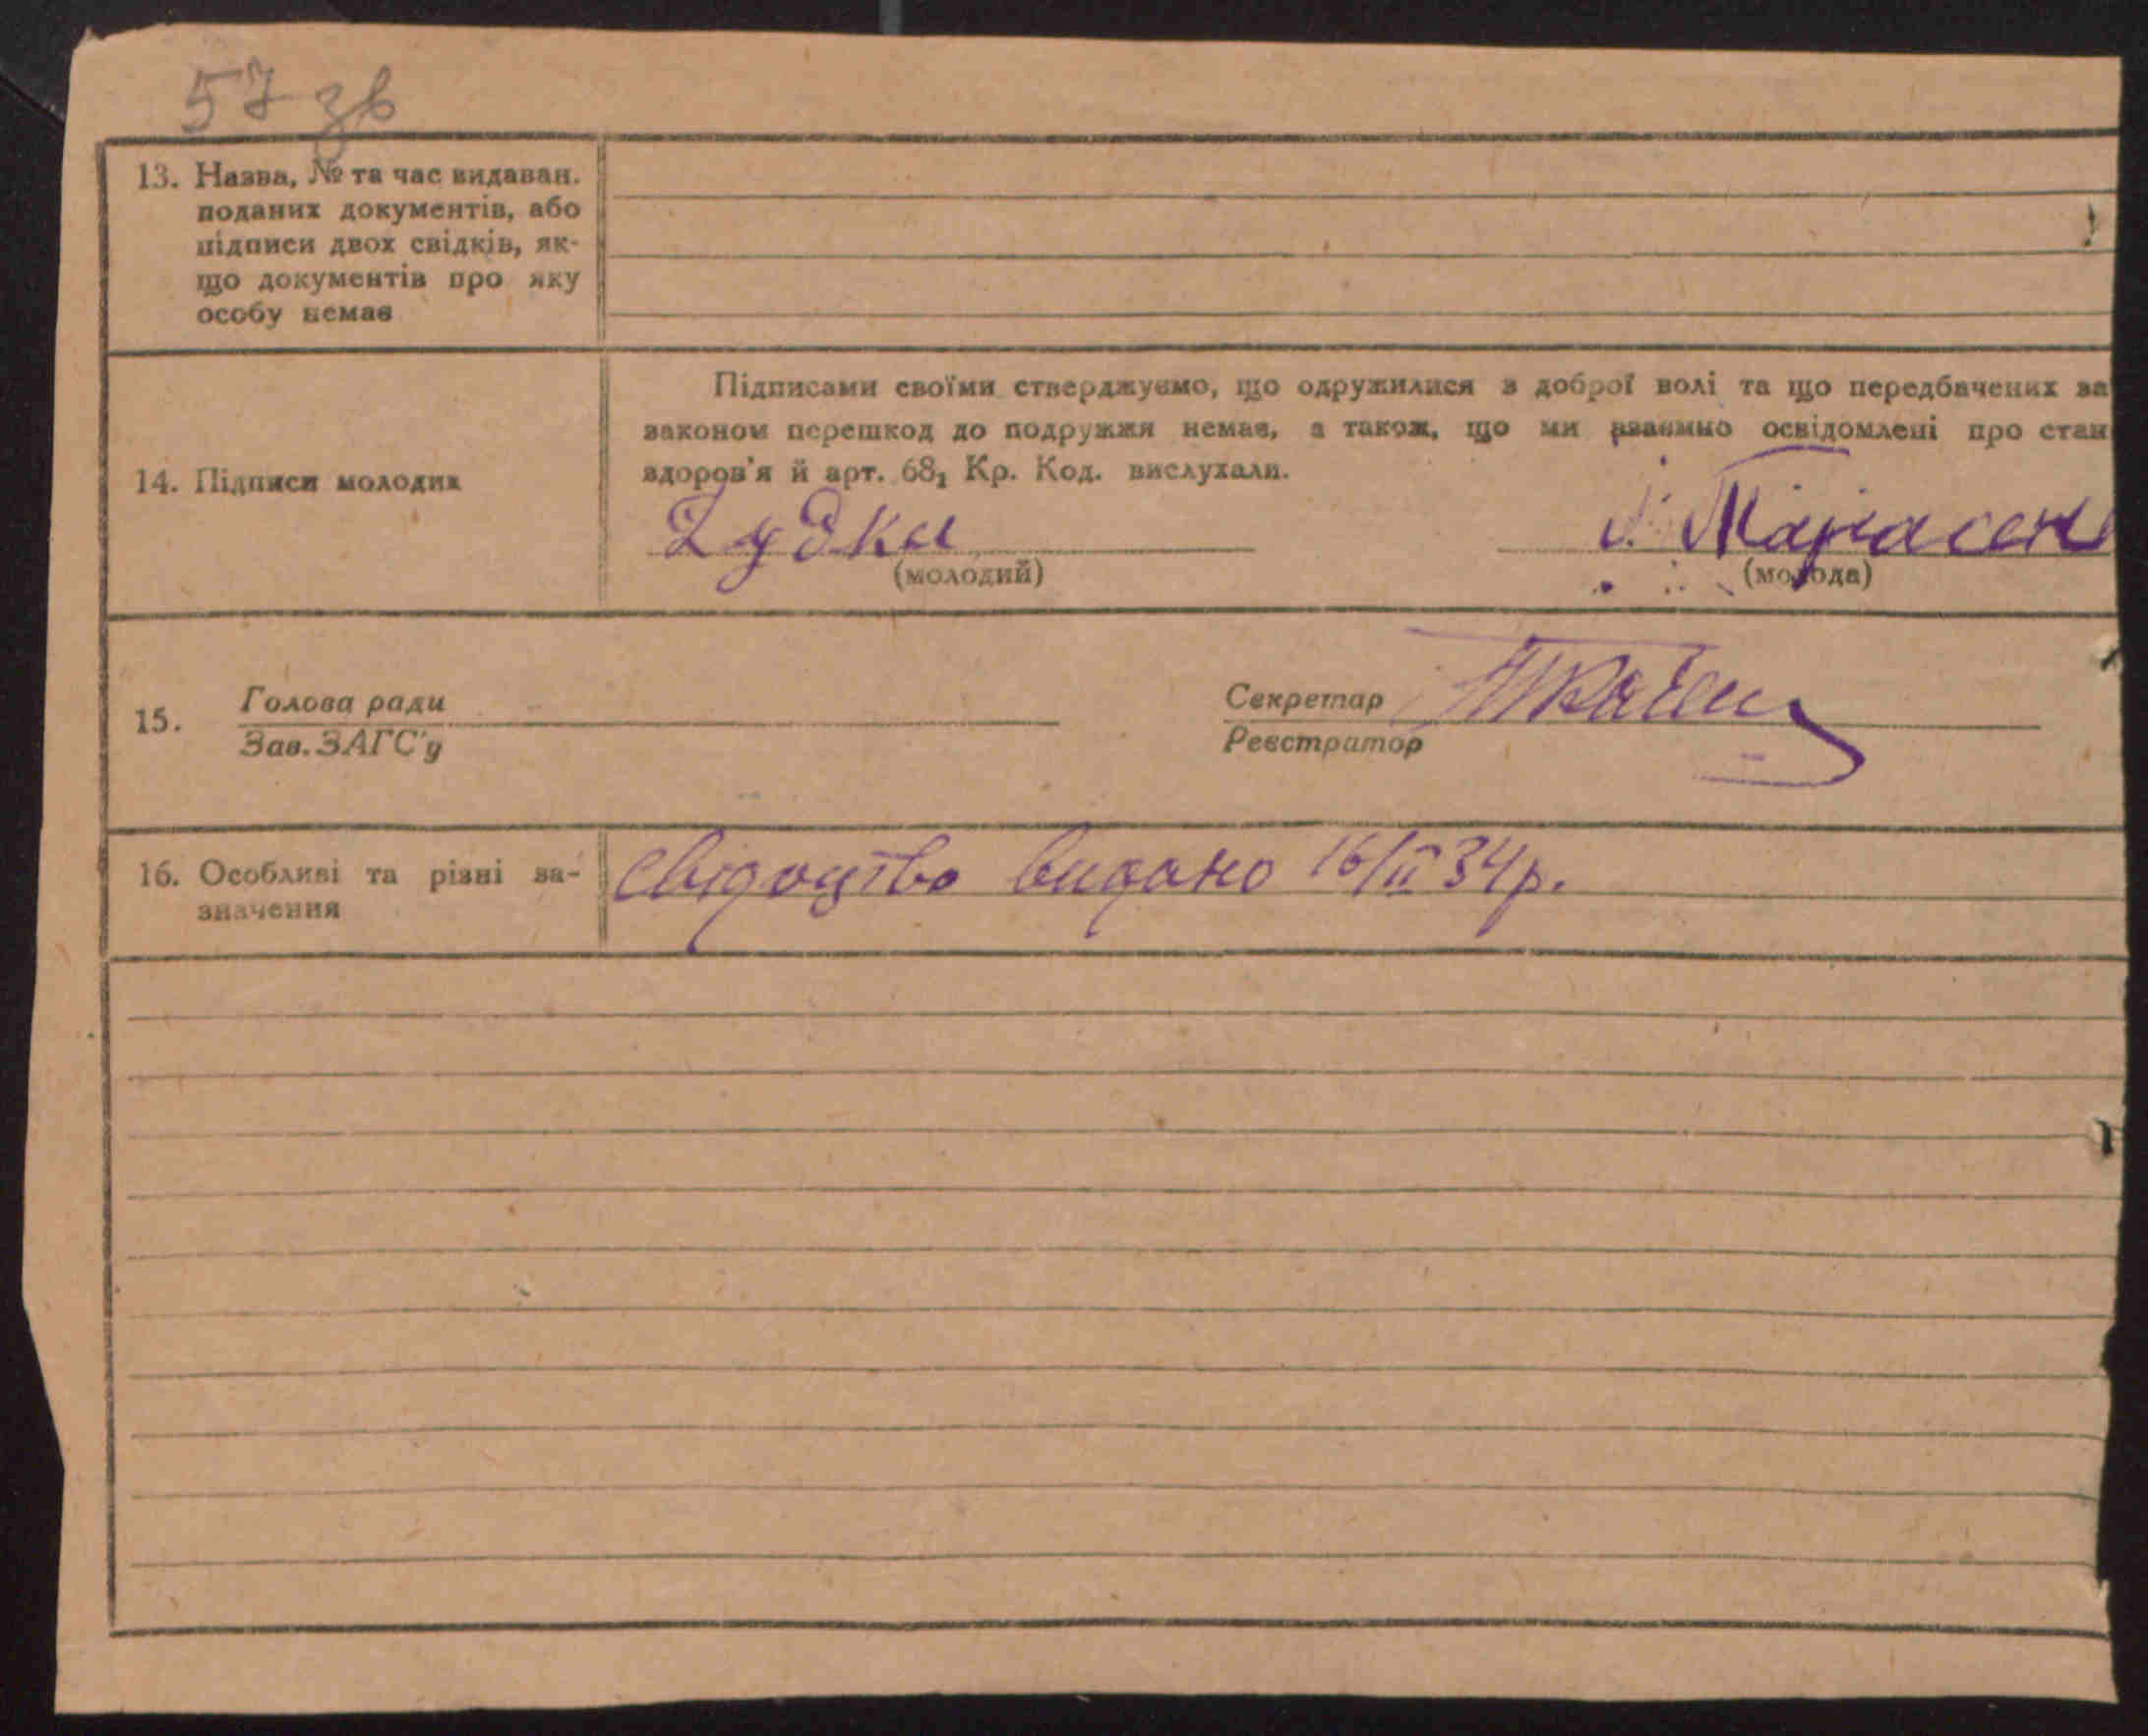 57 зв
13. Назва, № та час видаван.
поданих документів, або
підписи двох свідків, як-
що документів про яку
особу немає
Підписами своїми стверджуємо, що одружилися з доброї волі та що передбачених за
законом перешкод до подружжя немає, а також, що ми взаємно освідомлені про стан
здоров'я й арт. 68₁ Кр. Код. вислухали.
14. Підписи молодих
Дудка
(молодий)
(молода)
15.
Голова ради
Зав. ЗАГС'у
Секретар
Реєстратор
16. Особливі та різні за-
значення
Свідоцтво видано 16/II 34р.